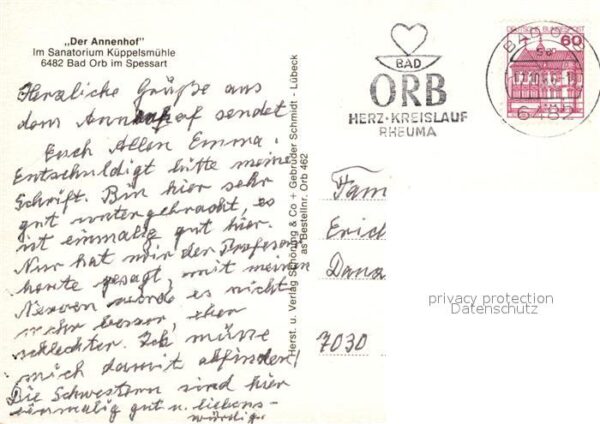 „Der Annenhof"
Im Sanatorium Küppelsmühle
6482 Bad Orb im Spessart
Herzliche Grüße aus
dem Annenhof sendet
Euch Allen Emma.
Entschuldigt bitte meine
Schrift. Bin hier sehr
gut untergebracht, es
ist einmalig gut hier.
Nur hat mir der Profesor
heute gesagt, mit meinen
Nerven würde es nicht
mehr besser, eher
schlechter. Ich müsse
mich damit abfinden!
Die Schwestern sind hier
einmalig gut u. liebens-
würdig.
Herst. u. Verlag Schöning & Co + Gebrüder Schmidt - Lübeck
Bestellnr. Orb 462
BAD
ORB
HERZ-KREISLAUF
RHEUMA
BAD ORB
60
6482
Fam
Erich
Dana
7030
privacy protection
Datenschutz